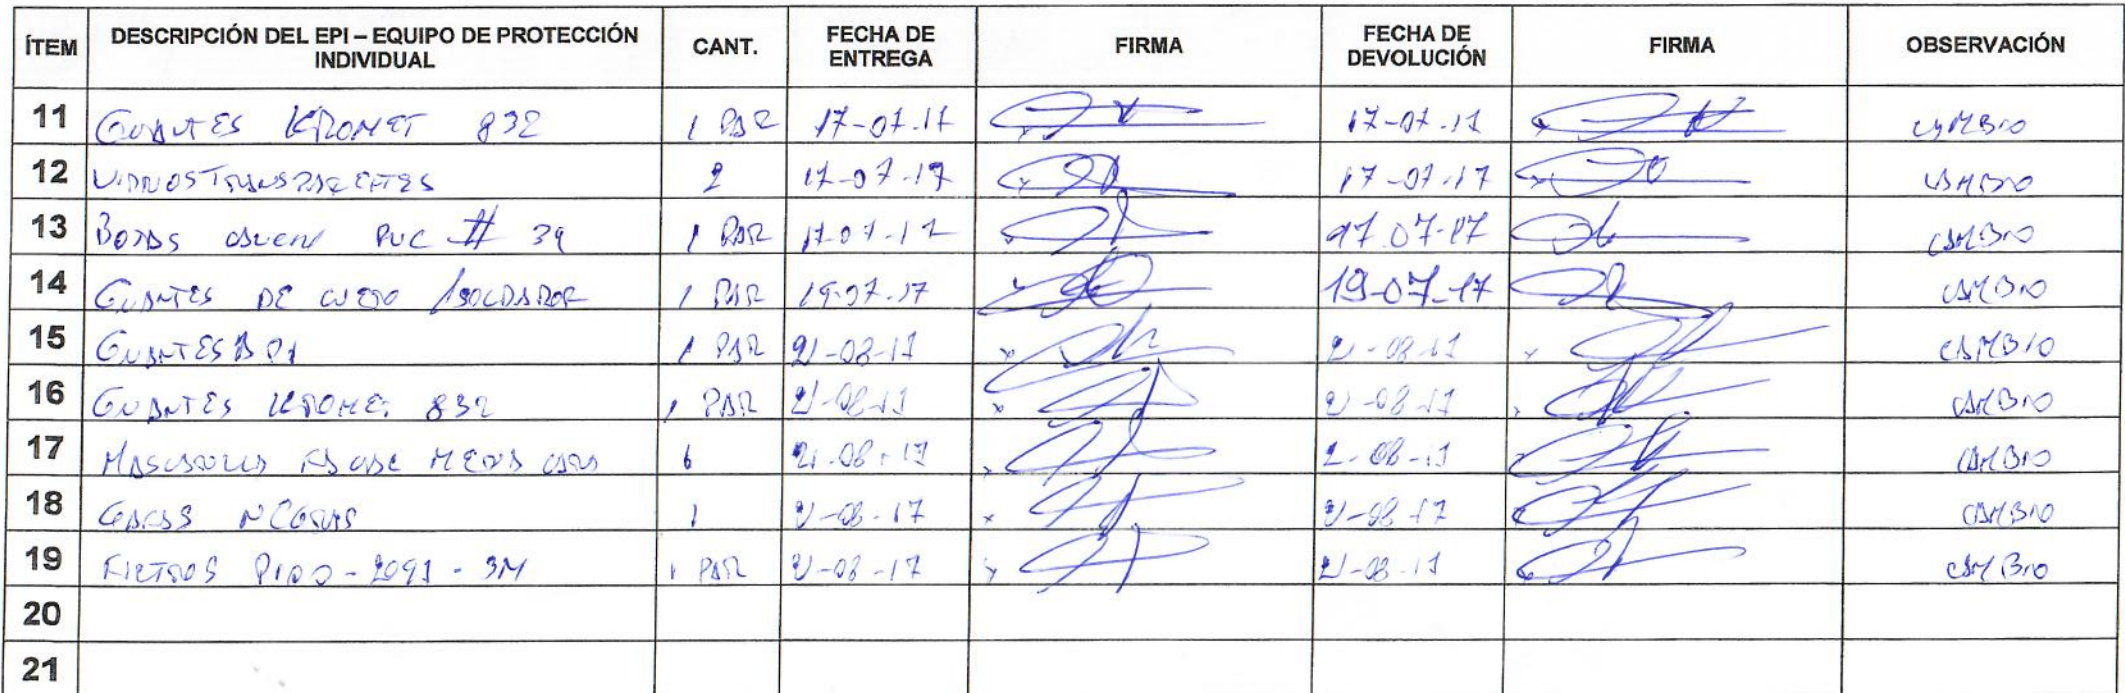 ÍTEM DESCRIPCIÓN DEL EPI – EQUIPO DE PROTECCIÓN INDIVIDUAL CANT. FECHA DE ENTREGA FIRMA FECHA DE DEVOLUCIÓN FIRMA OBSERVACIÓN
11 GUANTES KROMET 832 1 PAR 17-07-17 17-07-17 CAMBIO
12 VIDRIOS TRANSPARENTES 2 17-07-17 17-07-17 CAMBIO
13 BOTAS PVC # 39 1 PAR 17-07-17 17-07-17 CAMBIO
14 GUANTES DE CUERO /SOLDADOR 1 PAR 19-07-17 19-07-17 CAMBIO
15 GUANTES 1 PAR 21-08-17 21-08-17 CAMBIO
16 GUANTES KROMET 832 1 PAR 21-08-17 21-08-17 CAMBIO
17 MASCARILLA MEDIA CARA 6 21-08-17 2-08-17 CAMBIO
18 GAFAS NEGRAS 1 21-08-17 21-08-17 CAMBIO
19 FILTROS P100-2091-3M 1 PAR 21-08-17 21-08-17 CAMBIO
20
21